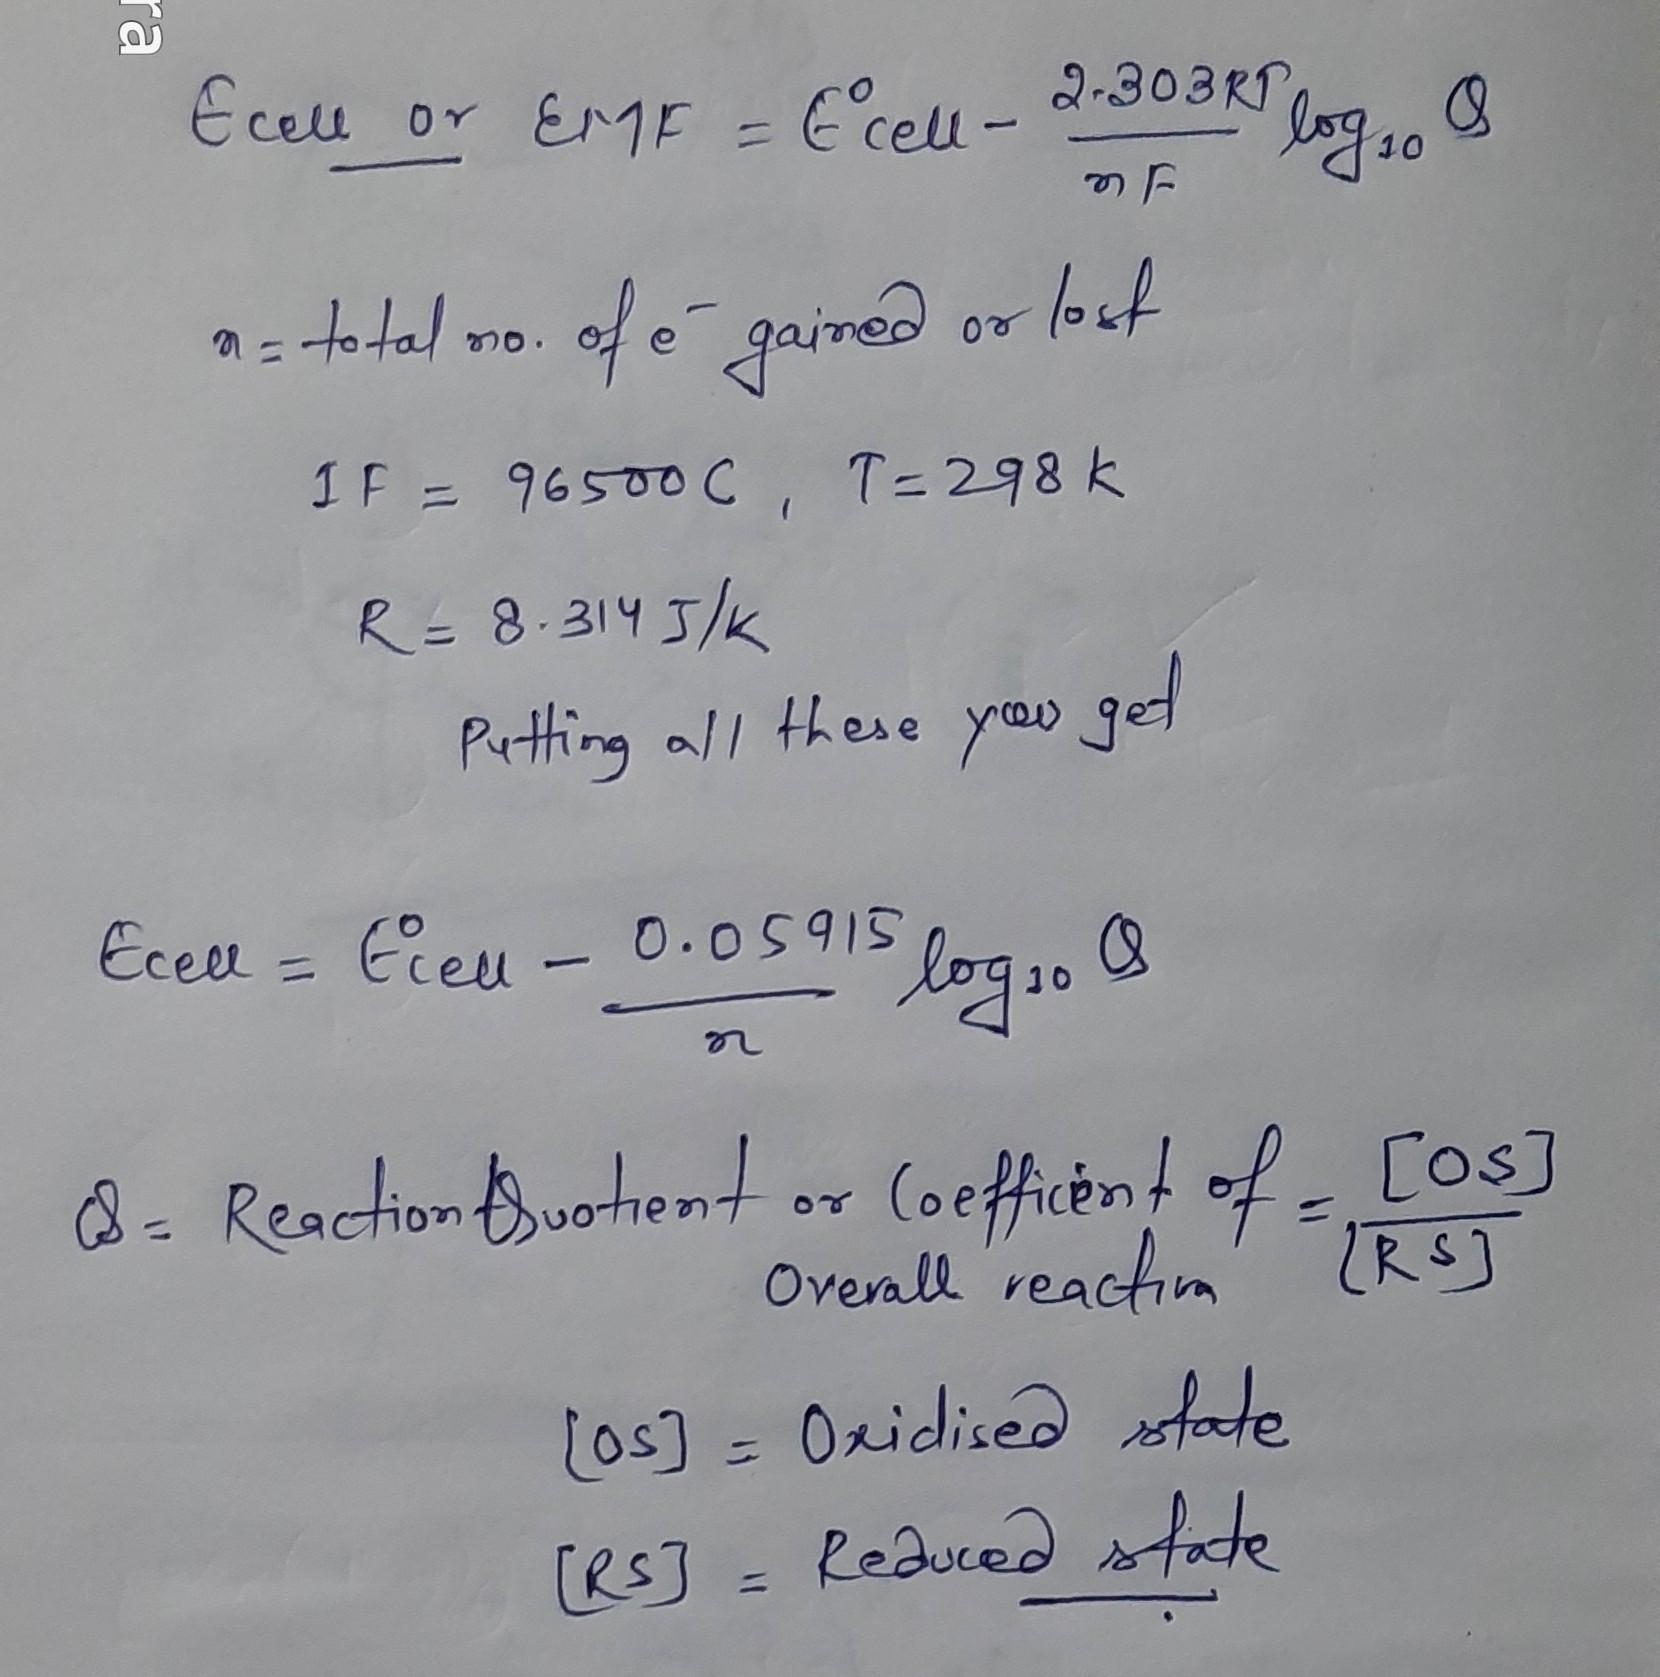 ra
Ecell or EMF = E°cell - 2.303RT/nF log₁₀ Q
n = total no. of e⁻ gained or lost
1F = 96500C, T=298K
R = 8.314 J/K
Putting all these you get
Ecell = E°cell - 0.05915/n log₁₀ Q
Q = Reaction Quotient or Coefficient of Overall reaction = [OS]/[RS]
[OS] = Oxidised state
[RS] = Reduced state